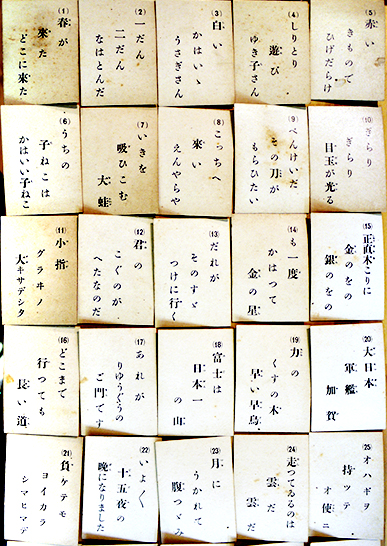 (1)春が
來た
どこに來た
(2)一だん
二だん
なはとんだ
(3)白い
かはいゝ
うさぎさん
(4)しりとり
遊び
ゆき子さん
(5)赤い
きもので
ひげだらけ
(6)うちの
子ねこは
かはいい子ねこ
(7)いきを
吸ひこむ
大蛙
(8)こっちへ
來い
えんやらや
(9)べんけいだ
その刀が
もらひたい
(10)ぎらり
ぎらり
目玉が光る
(11)小指
グラヰノ
大キサデシタ
(12)君の
こぐのが
へたなのだ
(13)だれが
そのすゞ
つけに行く
(14)も一度
かはつて
金の星
(15)正直木こりに
金のをの
銀のをの
(16)どこまで
行つても
長い道
(17)あれが
りゆうぐうの
ご門です
(18)富士は
日本一
の山
(19)力の
くすの木
早い早鳥
(20)大日本
軍艦
加賀
(21)負ケテモ
ヨイカラ
シマヒマデ
(22)いよ〱
十五夜の
晩になりました
(23)月に
うかれて
腹つゞみ
(24)走つてゐるのは
雲だ
雲だ
(25)オハギヲ
持ツテ
オ使ニ